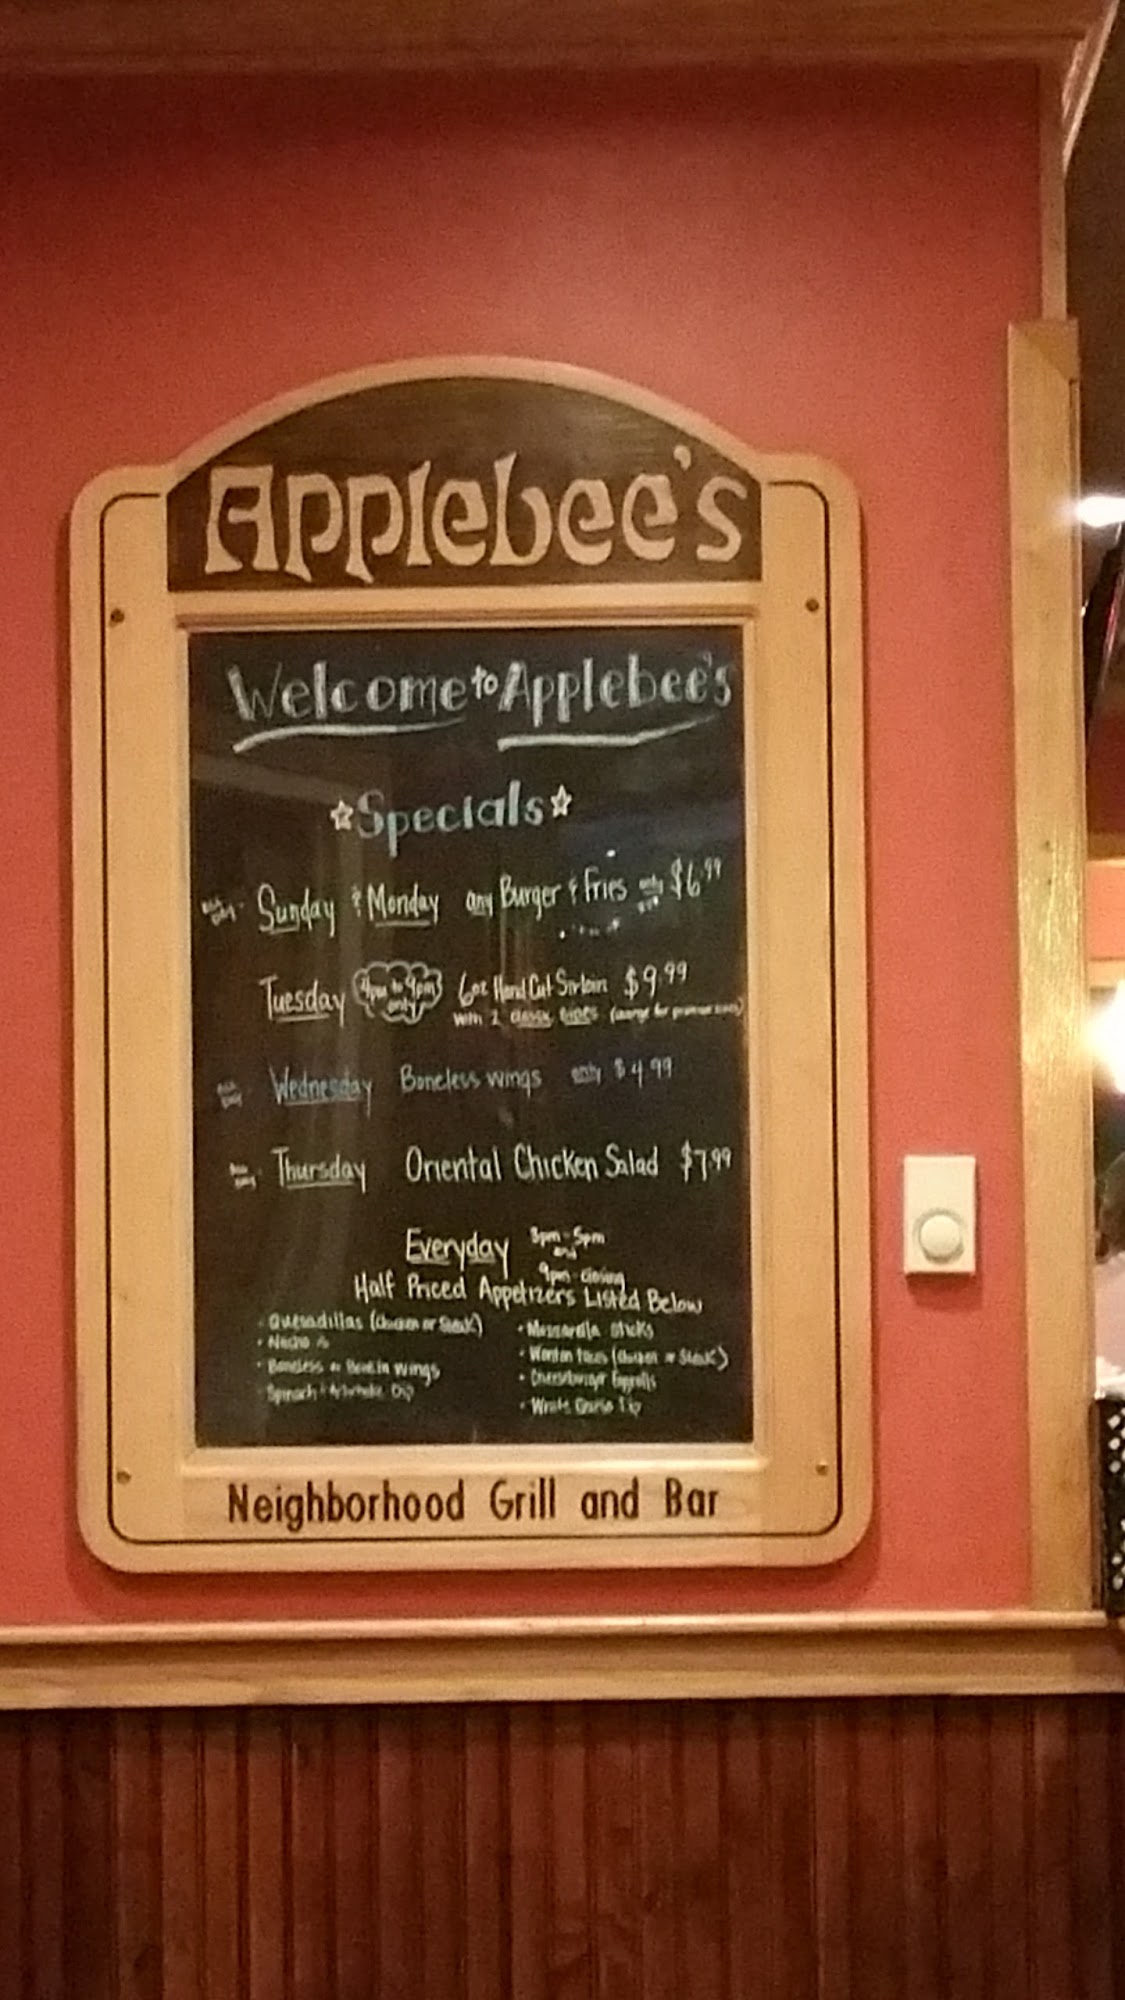 Applebee's
Welcome to Applebee's
☆Specials☆
All Day - Sunday & Monday any Burger & Fries only $6.99
Tuesday 4pm to 9pm only 6oz Hand Cut Sirloin $9.99
with 2 classic sides (upcharge for premium sides)
All Day Wednesday Boneless wings only $4.99
All Day - Thursday Oriental Chicken Salad $7.99
Everyday 3pm - 5pm
and
9pm - closing
Half Priced Appetizers Listed Below
· Quesadillas (Chicken or Steak)
· Mozzarella sticks
· Wonton tacos (Chicken or Steak)
· Boneless or Bone in wings
· Cheeseburger Eggrolls
· Spinach & Artichoke Dip
Neighborhood Grill and Bar